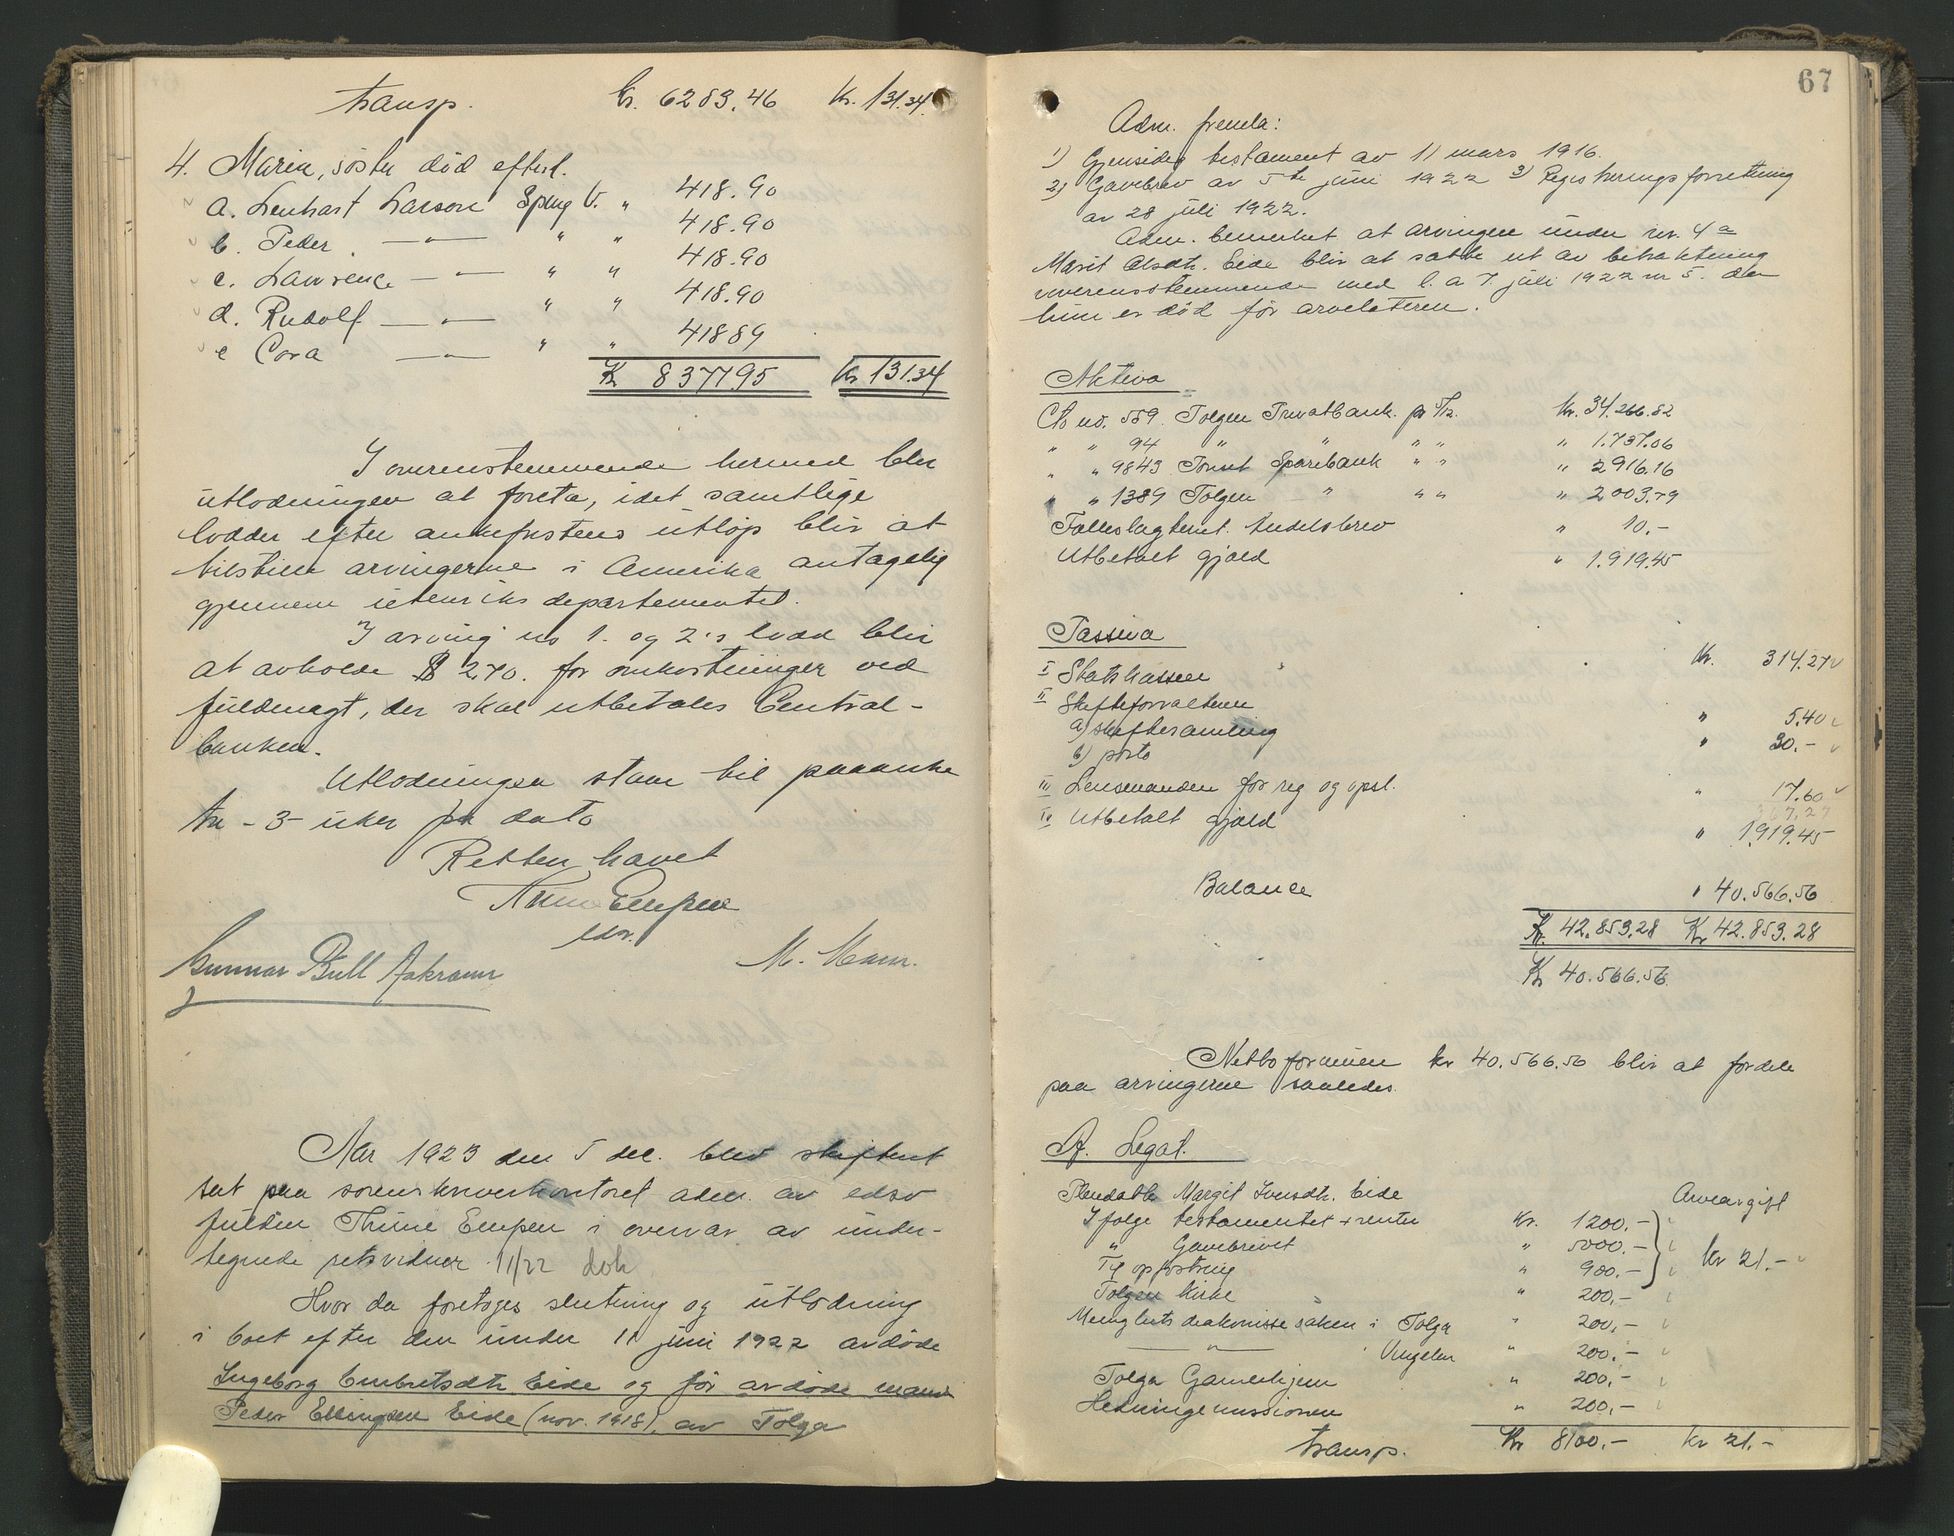 transp. kr. 6283.46 Kr. 131.34.
4. Marie, søster død efterl.
a. Lenhart Larson Spring V. " 418.90
b. Peder —"— " " 418.90
c. Lawrence —"— " " 418.90
d. Rudolf —"— " " 418.90
e Cora —"— " " 41889
Kr 837795 Kr 131.34
I overensstemmende hermed blir
utlodningen at foreta, idet samtlige
lodder efter ankefristens utløp blir at
tilstille arvingerne i Amerika antagelig
gjennem utenriksdepartementet.
I arving no 1. og 2's lodd blir
at avholde $ 2.70. for omkostninger ved
fuldmagt, der skal utbetales Central-
banken.
Utlodningen staar til paaanke
tre -3- uker fra dato
Retten hævet
Thrine Empen
edsv.
Gunnar Bull Aakrann M. Moen.
Aar 1923 den 5 dec. blev skifteret
sat paa sorenskriverkontoret adm. av edsv
fuldm Thrine Empen i overvær av under-
tegnede retsvidner 11/22 dok
Hvor da foretoges slutning og utlodning
i boet efter den under 11 juni 1922 avdøde
Ingeborg Embretsdtr Eide og før avdøde mand
Peder Ellingsen Eide (nov. 1918), av Tolga
67
Adm. fremla:
1) Gjensidig testament av 11 mars 1916.
2) Gavebrev av 5te juni 1922 3) Registreringsforretning
av 28 juli 1922.
Adm. bemerket at arvingen under nr. 4 a
Marit Olsdtr. Eide blir at sætte ut av betraktning
overensstemmende med l. a 7. juli 1922 nr 5. da
hun er død før arveladeren.
Aktiva
Cto no. 559. Tolgen Privatbank. pr Kr. 34.266.82
" " 94 " " " " " 1.737.06
" " 9843 Tønset Sparebank " " " 2916.16
" " 1389 Tolgen " " " " 2003.79
Fælleslagteriet. Andelsbrev " 10.-
Utbetalt gjæld " 1.919.45
Passiva
I Statskassen Kr. 314.27
II Skifteforvalteren
a) skiftesamling " 5.40
b) porto " 30.-
III Lensmanden for reg og opsl. " 17.60
367.27
IV Utbetalt gjæld " 1919.45
Balance " 40.566.56
Kr. 42.853.28 Kr 42.853.28
Kr 40.566.56
Netto formuen kr 40.566.56 blir at fordele
paa arvingerne saaledes.
A. Legat.
Pleiedatter Margit Svendsdtr. Eide Arveavgift
I følge testamentet + renter Kr. 1200.-
" Gavebrevet " 5000.- Kr 21.-
Til opfostring " 900.-
Tolgen Kirke " 200,-
Menighets diakonissesaken i Tolga " 200,-
—"— Vingelen " 200.-
Tolga Gamlehjem " 200.-
Hedningemissionen " 200.-
transp. Kr 8100.- Kr 21.-